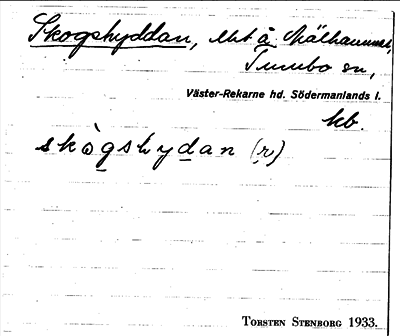 Skogshyddan, lht å Mälhammar,
Tumbo sn,
Väster-Rekarne hd. Södermanlands l.
kb.
skògshydan (r)
TORSTEN STENBORG 1933.